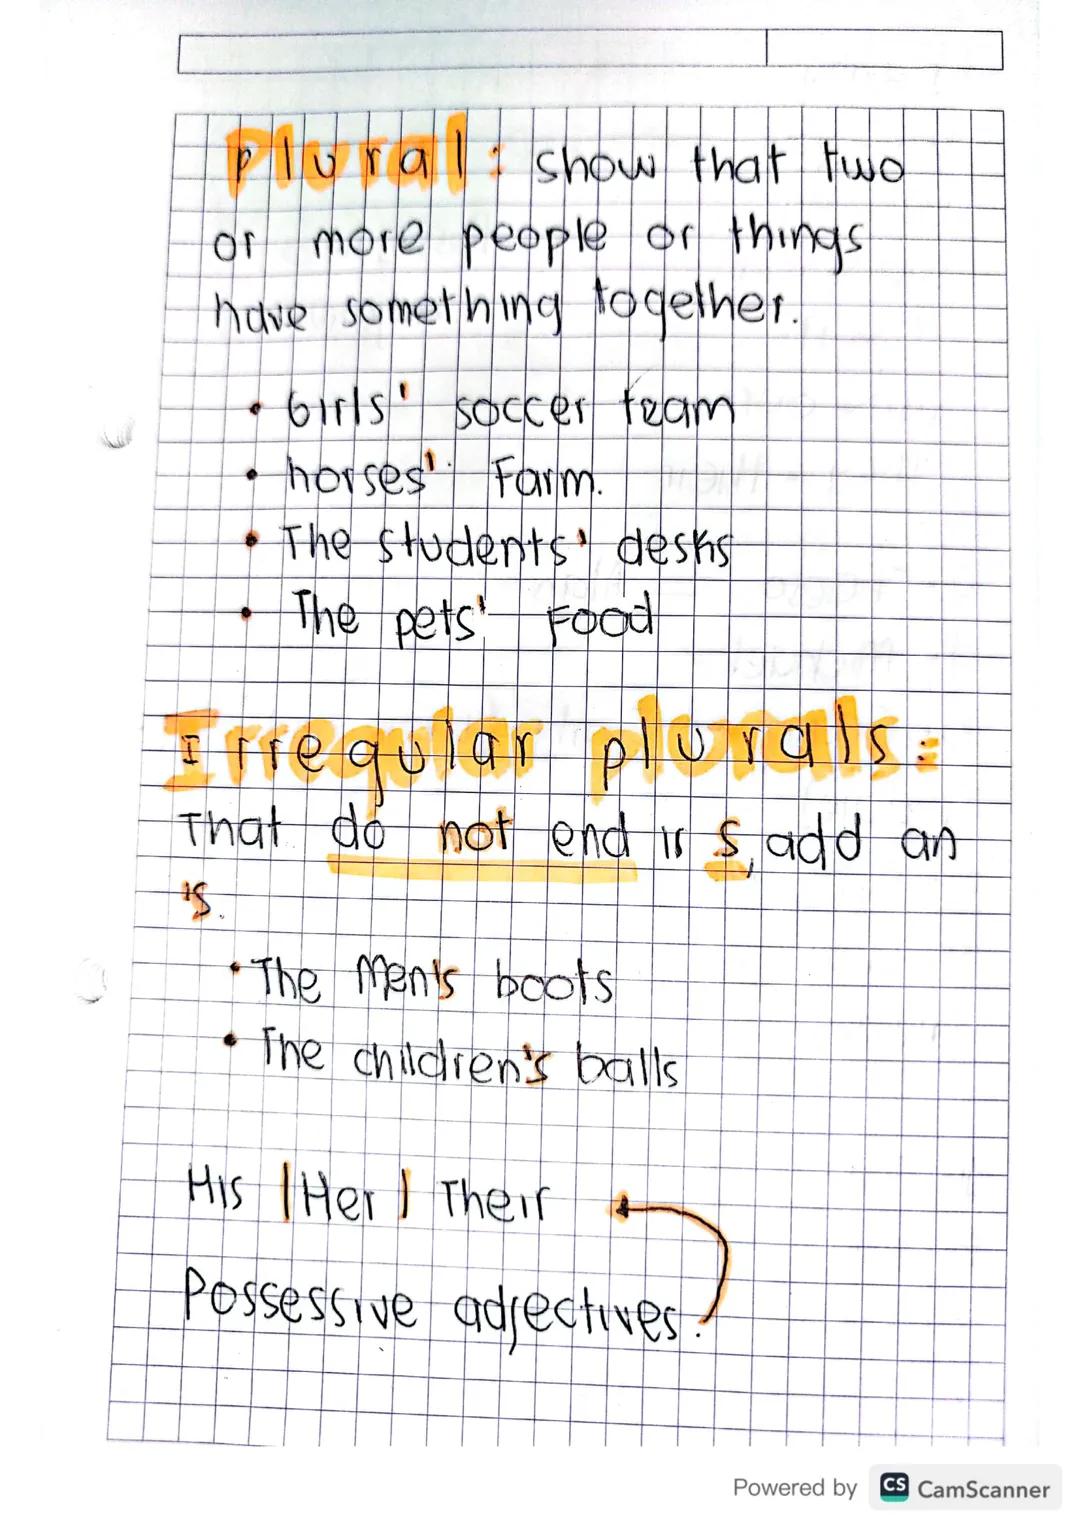 Plural: show that two
or more people or things
have something together.
• Girls' soccer team
• horses' Farm.
• The students' desks
• The pets' Food
Irregular plurals:
That do not end in s, add an
's.
• The Men's boots
• The children's balls
His | Her | Their
Possessive adjectives.
Powered by CS CamScanner